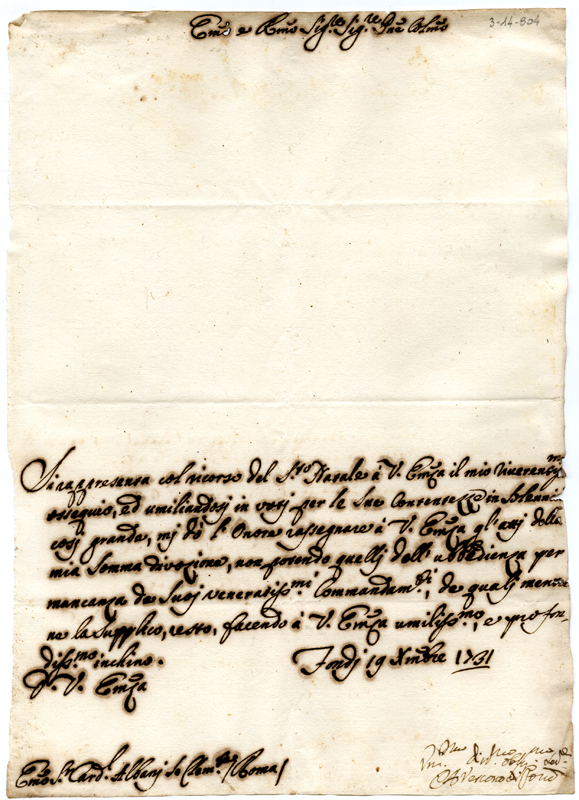 3-14-804
Emo e Rmo Sig.re Sig.re Pne Colmo
Si rappresenta col ricorso del S.to Natale à V. Emza il mio riverentmo
ossequio, ed umiliandosj in votj per le Sue Contentezze in Solennità
così grande, mj dò l'Onore rassegnare à V. Emza gl'attj della
mia Somma divozione, non potendo quellj dell'ubbedienza per
mancanza de Suoj veneratiss.mi Commandam.ti, de qualj mentre
ne la supplico, resto, facendo à V. Emza umiliss.mo, e profon-
diss.mo inchino.
Fondj 19 Xmbre 1731
D. V. Emza
Emo Sr Card.l Albanj S. Clem.te / Roma /
Vmo Divmo
Il Vescovo di Fondi